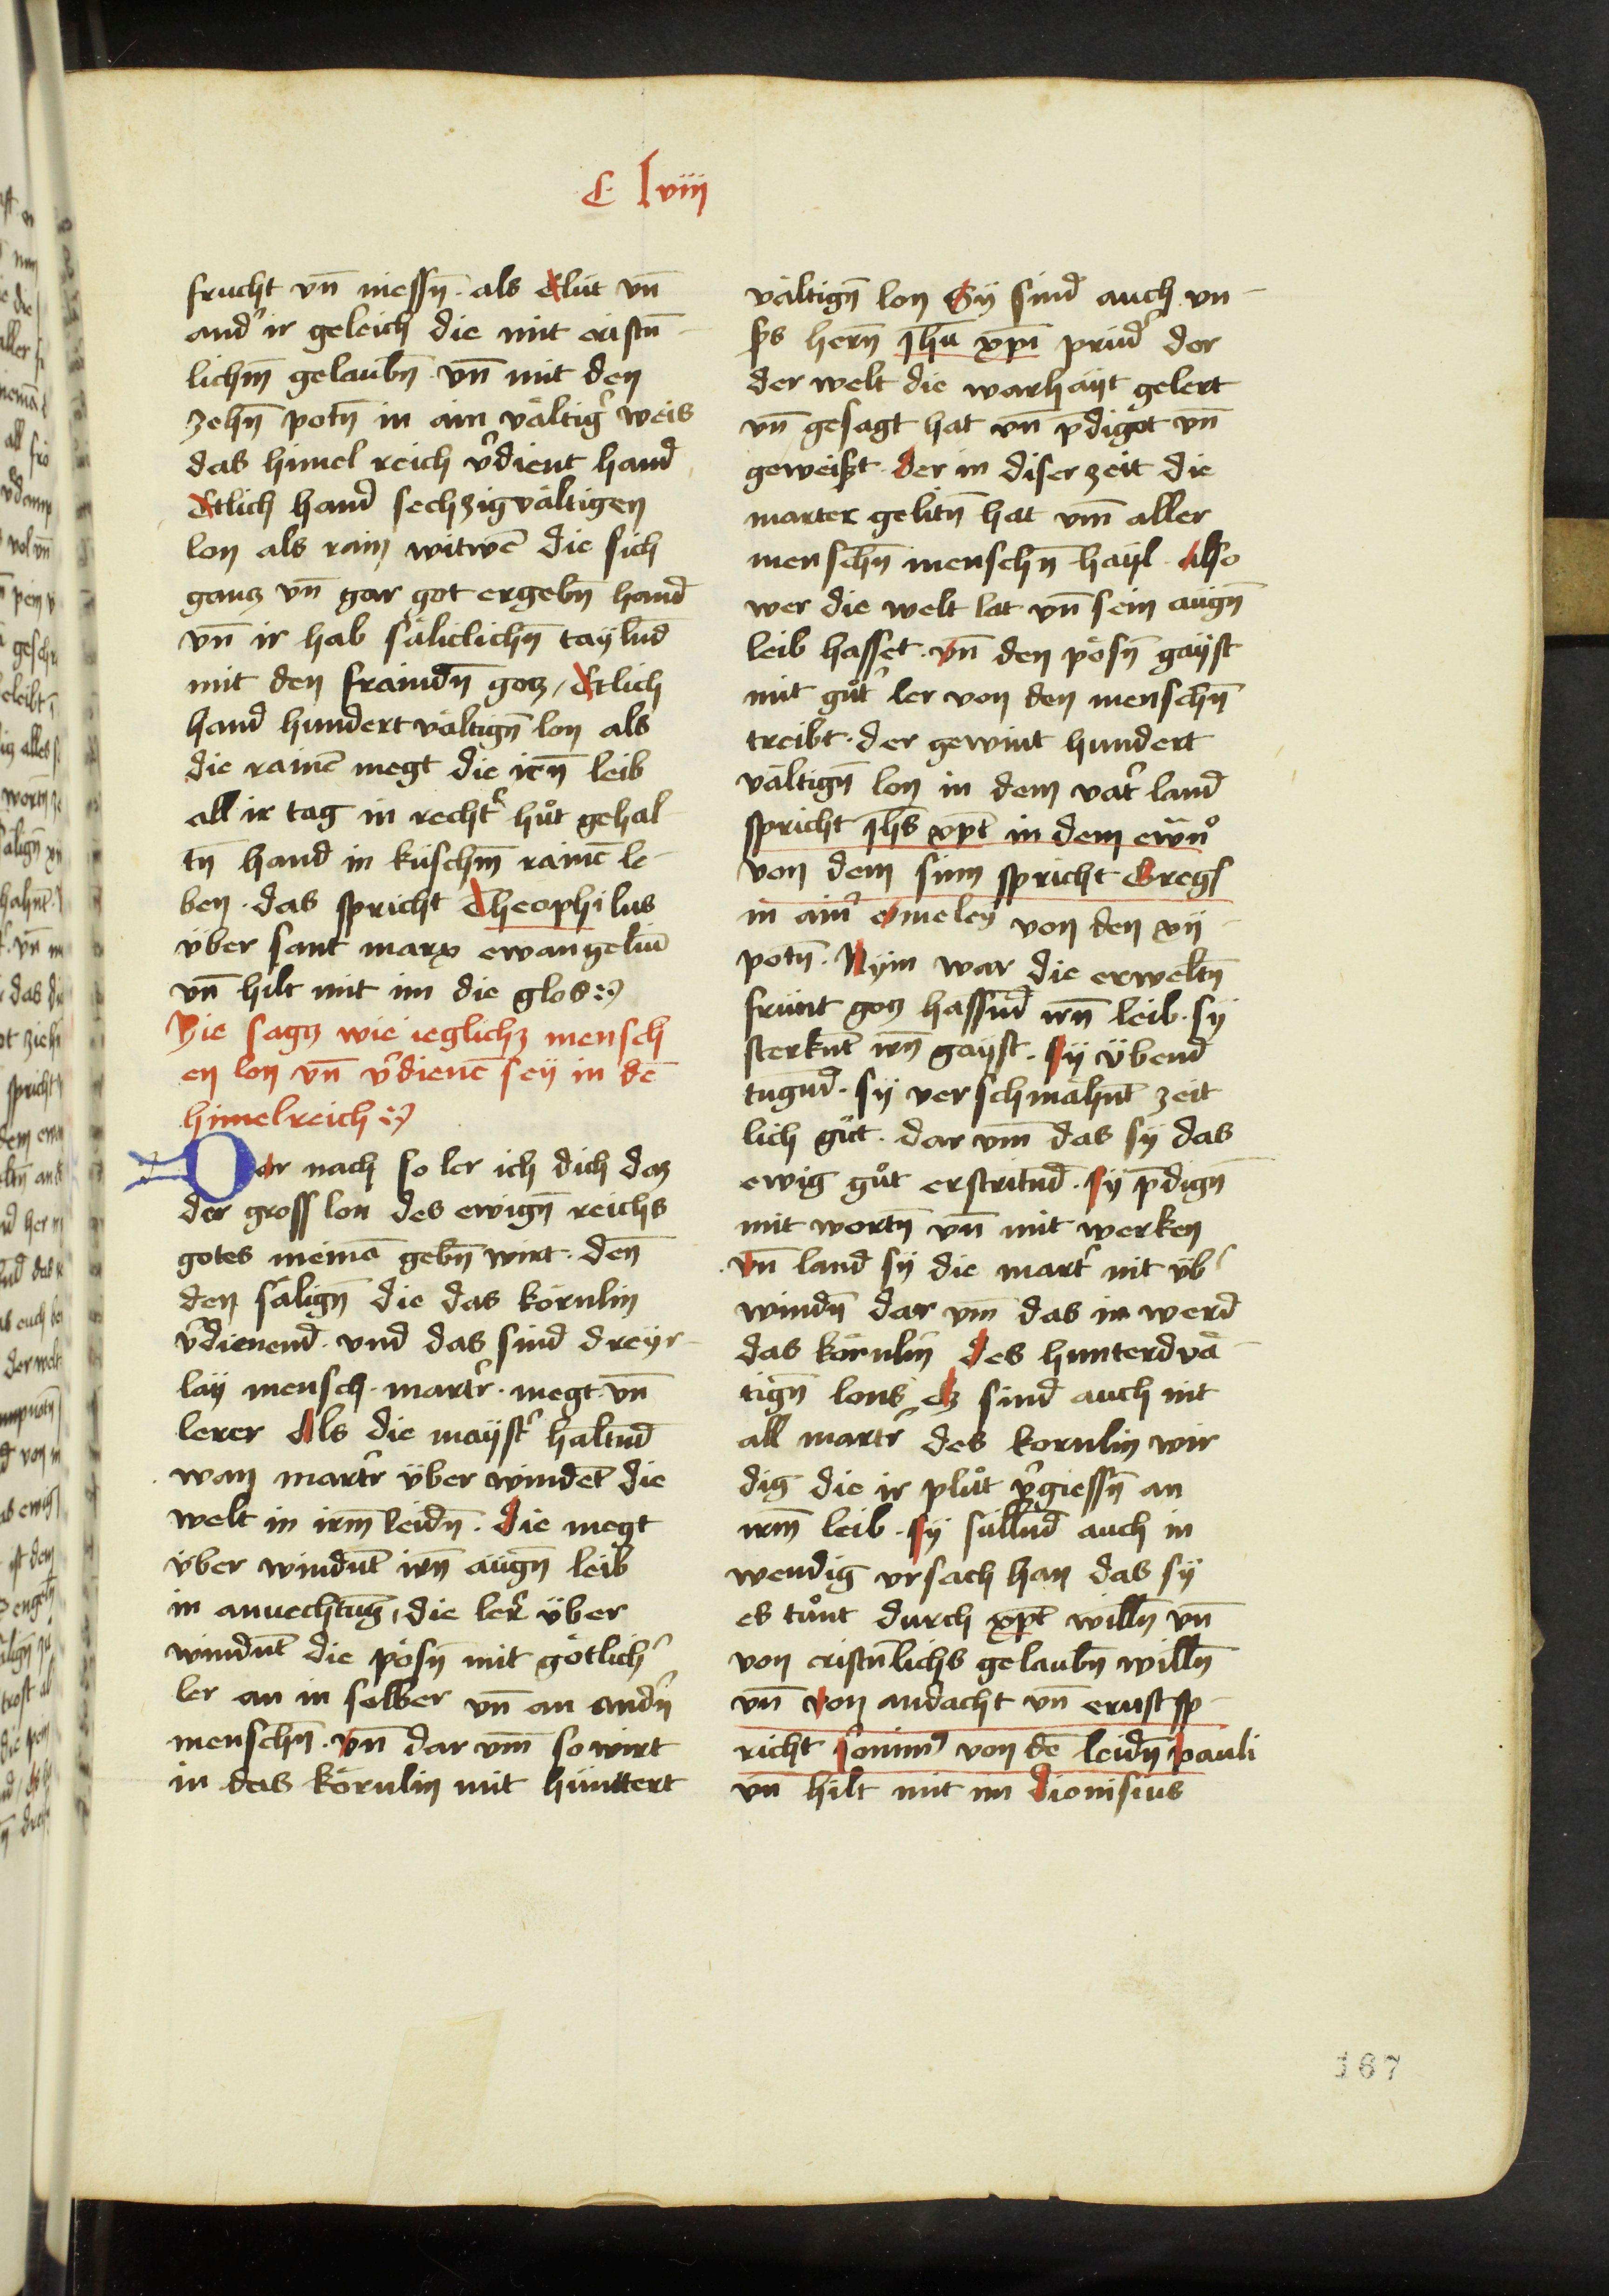 C lviii
frucht vn̄ niessn̄ · als elüt vn̄
and' ir geleich die mit cristn̄
lichm̄ gelaubn̄ vn̄ mit den
zehn̄ potn̄ in ain vältig' weis
das himel reich v'dient hand
Etlich hand sechzigvältigen
lon als rain witwē die sich
ganz vn̄ gar got ergebn̄ hand
vn̄ ir hab säliclichn̄ taylnd
mit den fraindn̄ gotz / Etlich
hand hundert vältign̄ lon als
die rainē megt die irn̄ leib
all ir tag in recht' hůt gehal
tn̄ hand in küschm̄ rainē le-
ben · das spricht Theophilus
über sant marx ewangeliū
vn̄ hilt mit im die glos
Hie sagz wie ieglichz mensch
en lon vn̄ v'dienē sey in dē
himelreich
Dar nach so ler ich dich daz
der gross lon des ewign̄ reichs
gotes niemā gebn̄ wirt · den̄
den sälign̄ die das körnlin
v'dienend · vnd das sind dreyr-
lay mensch · martr' · megt vn̄
lerer Als die mayst' haltnd
wan martr' über windet die
welt in irm̄ leidn̄ · die megt
über windnt irn̄ aign̄ leib
in anuechtung, die ler' über
windnt die pösn̄ mit götlich'
ler an in selber vn̄ an andn̄
menschn̄ · vn̄ dar vm̄ so wirt
in das körnlin mit hünttert
vältign̄ lon Sy sind auch vn-
sers hern̄ ihū xpi prüd' der
der welt die warhayt gelert
vn̄ gesagt hat vn̄ p̄digot vn̄
geweißt · der in diser zeit die
marter gelitn̄ hat vm̄ aller
menschn̄ menschn̄ hayl · Also
wer die welt lat vn̄ sein aign̄
leib hasset · vn̄ den pösn̄ gayst
mit gůt' ler von den menschn̄
treibt · der gewint hundert
vältign̄ lon in dem vat' land
spricht ihs xpt in dem ewn̄
von dem sinn spricht Gregˢ
in ain' omeley von den xij
potn̄ · Nym war die erweltn̄
frünt gotz hassnd irn̄ leib · sy
sterknt irn̄ gayst · Sy übend
tugnd · sy verschmähnt zeit
lich gůt · dar vm̄ das sy das
ewig gůt erstritnd · sy p̄dign̄
mit wortn̄ vn̄ mit werken
vn̄ land sy die mart' nit üb'
windn̄ dar vm̄ das in werd
das körnlin des hunterdvä-
tign̄ lons ez sind auch nit
all martr' des kornlin wir
dig die ir plůt v'giessn̄ an
irm̄ leib · Sy süllnd auch in
wendig vrsach han das sy
es tůnt durch xpt willn̄ vn̄
von cristnlichs gelaubn̄ willn̄
vn̄ von andacht vn̄ ernst sp-
richt von dē leidn̄ pauli
vn̄ hilt mit im dionisius
167